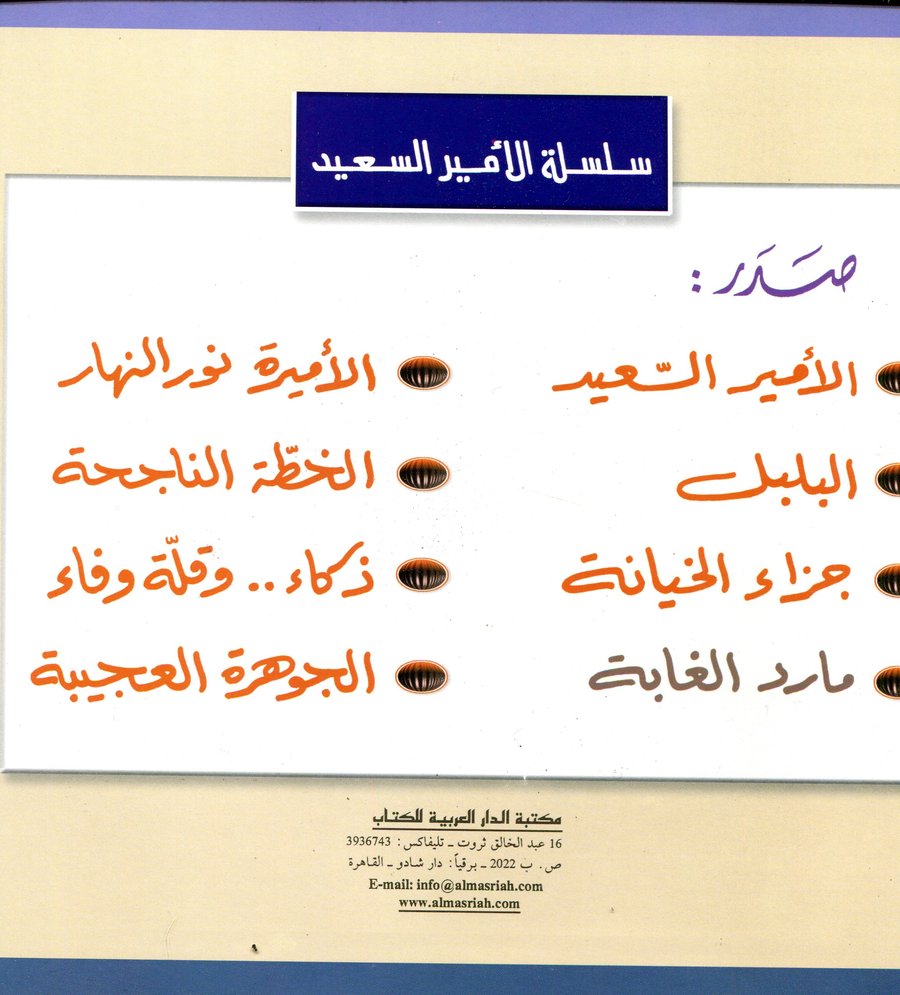 سلسلة الأمير السعيد
صَدَر :
الأمير السّعيد
البلبل
جزاء الخيانة
مارد الغابة
الأميرة نور النهار
الخطّة الناجحة
ذكاء .. وقلّة وفاء
الجوهرة العجيبة
مكتبة الدار العربية للكتاب
16 عبد الخالق ثروت ــ تليفاكس : 3936743
ص . ب 2022 ــ برقياً : دار شادو ــ القاهرة
E-mail: info@almasriah.com
www.almasriah.com